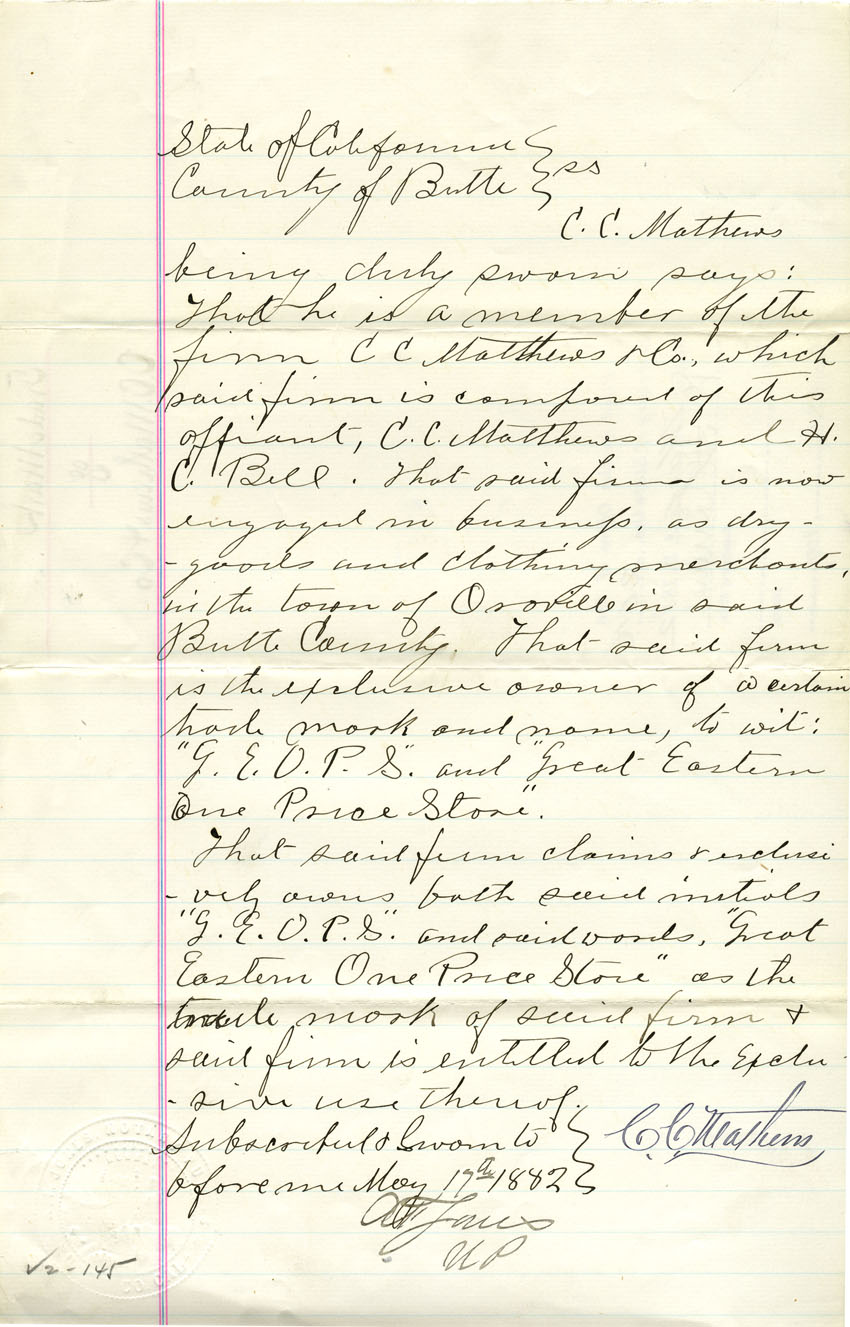 State of California } ss
County of Butte
C. C. Mathews
being duly sworn says:
That he is a member of the
firm C C Matthews & Co., which
said firm is composed of this
affiant, C. C. Matthews and H.
C. Bell. That said firm is now
engaged in business, as dry-
-goods and clothing merchants,
in the town of Oroville in said
Butte County. That said firm
is the exclusive owner of a certain
trade mark and name, to wit:
"G. E. O. P. S". and "Great Eastern
One Price Store".
That said firm claims & exclusi
-vely owns both said initials
"G. E. O. P. S." and said words, "Great
Eastern One Price Store" as the
trade mark of said firm &
said firm is entitled to the Exclu-
-sive use thereof.
Subscribed & Sworn to }
before me May 17th 1882
C. C. Mathews
Jones
NP
2-145